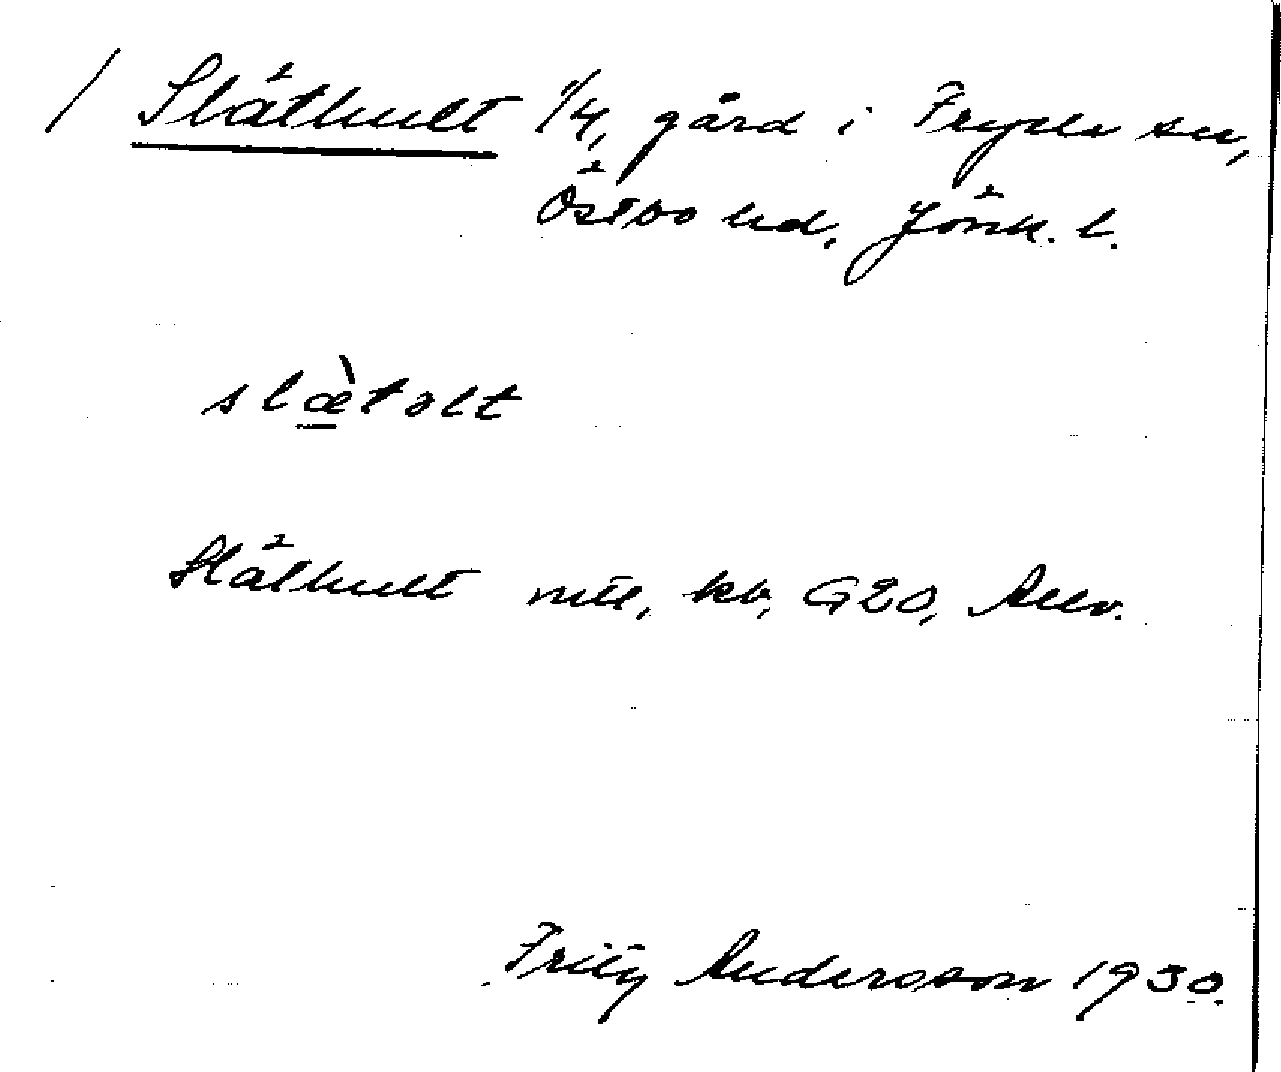 / Släthult 1/4, gård i Fryele sn,
Östbo hd, Jönk. l.
slæ̀tolt
Släthult mtl, kb, G20,
Fritz Andersson 1930.